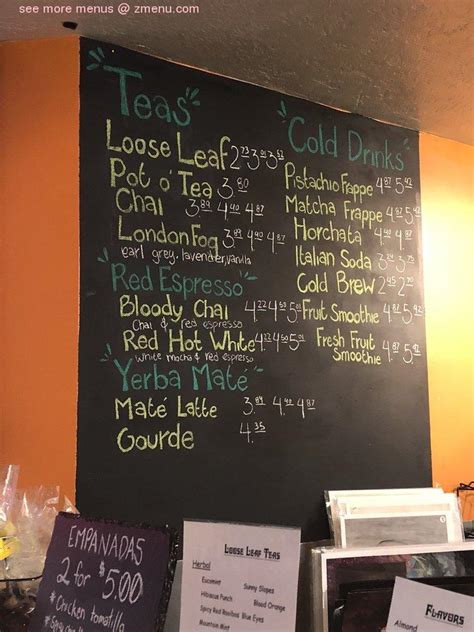 see more menus @ zmenu.com
Teas
Loose Leaf 2.73 3.00 3.53
Pot o' Tea 3.80
Chai 3.89 4.40 4.87
London Fog 3.89 4.40 4.87
earl grey, lavender, vanilla
Red Espresso
Bloody Chai 4.22 4.50 5.01
Chai & red espresso
Red Hot White
white mocha & red espresso
Yerba Maté
Maté Latte 3.89 4.40 4.87
Gourde 4.35
Cold Drinks
Pistachio Frappe 4.87 5.42
Matcha Frappe 4.87 5.42
Horchata 4.87 5.42
Italian Soda
Cold Brew
Fruit Smoothie 4.87 5.42
Fresh Fruit
Smoothie 4.87 5.42
EMPANADAS
2 for $5.00
*Chicken tomatillo
Loose Leaf Teas
Herbal
Eucamint Sunny Slopes
Hibiscus Punch Blood Orange
Spicy Red Rooibos Blue Eyes
Mountain Mint
Flavors
Almond